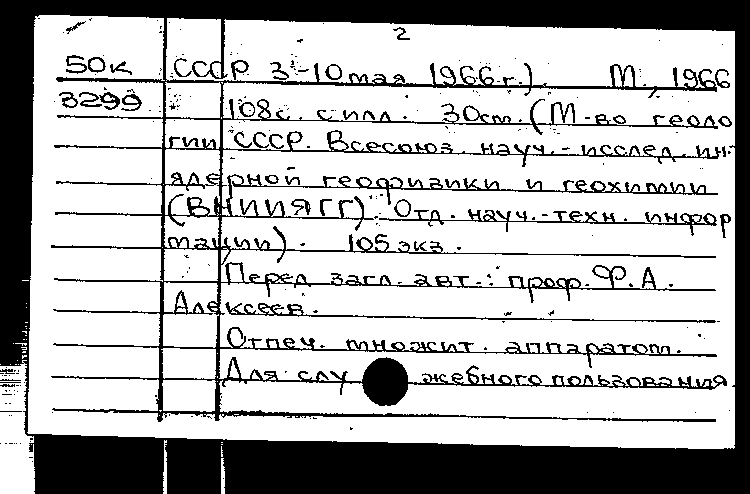 2
50к СССР 3-10 мая 1966 г.). М., 1966
3299 108 с. с илл. 30 см. (М-во геоло
гии СССР. Всесоюз. науч.-исслед. ин-т
ядерной геофизики и геохимии
(ВНИИЯГГ). Отд. науч.-техн. инфор
мации). 105 экз.
Перед загл. авт.: проф. Ф.А.
Алексеев.
Отпеч. множит. аппаратом.
Для служебного пользования